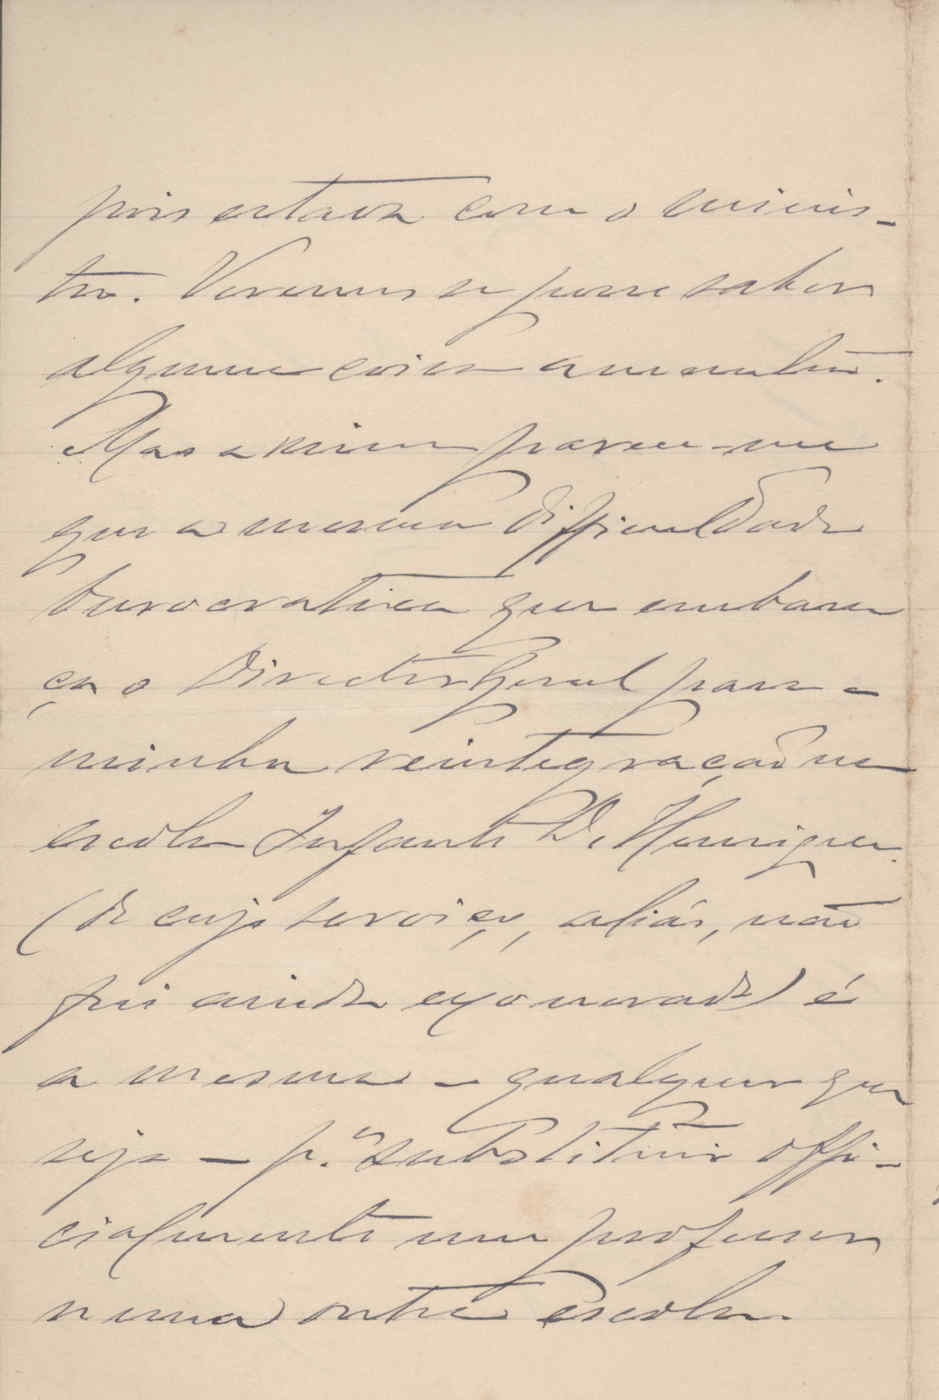 pois estava com o minis-
tro. Veremos se posso saber
alguma coisa amanhã.
Mas a mim parece-me
que a mesma difficuldade
burocratica que embara
ça o Director Geral para a
minha reintegração na
escola Infante D. Henrique
(de cujo serviço, aliás, não
fui ainda exonerado) é
a mesma - qualquer que
seja - p.ª substituir offi-
cialmente um professor
numa outra Escola.